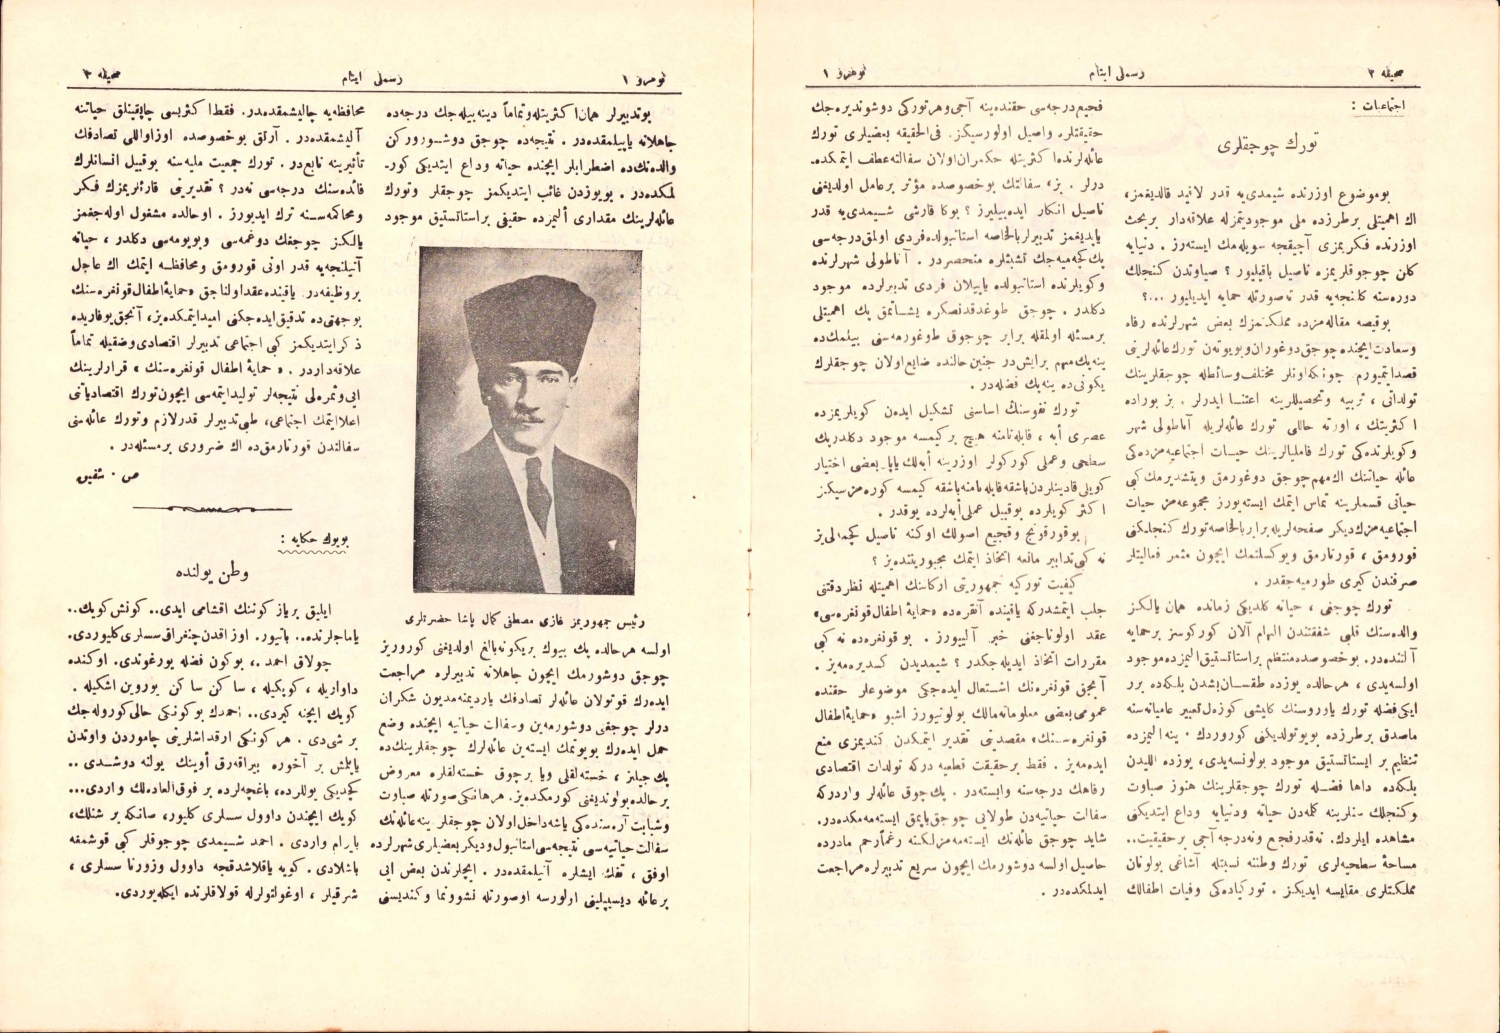 صحیفه ۲
رسملی ایتام
نومرو ۱
اجتماعیات :
تورك چوجقلری
بوموضوع اوزرنده شیمدی‌یه قدر لاقید قالدیغمز،
اك اهمیتلی برطرزده ملی موجودیتمزله علاقه‌دار بربحث
اوزرنده فكریمزی آچیقجه سویله‌مك ایسته‌رز . دنیایه
كلن چوجوقلریمزه ناصیل باقیلیور ؟ صباوتدن كنجلك
دوره‌سنه كلنجه‌یه قدر نه‌صورتله حمایه ایدیلیور ...؟
بوقیصه مقاله‌مزده مملكتمزك بعض شهرلرنده رفاه
وسعادت ایچنده چوجق دوغوران وبویوتن تورك عائله‌لرینی
قصد ایتمیورم . چونكه اونلر مختلف وسائطله چوجقلرینك
تولداتی ، تربیه وتحصیللرینه اعتنا ایدرلر . بز بوراده
اكثریتك ، اورته حاللی تورك عائله‌لریله آناطولی شهر
وكویلرنده‌كی تورك فامیلیالرینك حیات اجتماعیه‌مزده‌كی
عائله حیاتنك اك مهم چوجق دوغورمق ویتشدیرمك كبی
حیاتی قسملرینه تماس ایتمك ایسته‌یورز مجموعه‌مز حیات
اجتماعیه‌مزك دیكر صفحه‌لریله برابر بالخاصه تورك كنجلكنی
قورومق ، قورتارمق ویوكسلتمك ایچون مثمر فعالیتلر
صرفندن كیری طورمیه‌جقدر .
تورك چوجغی ، حیاته كلدیكی زمانده همان یالكز
والده‌سنك قلبی شفقتندن الهام آلان كوركوسز برحمایه
آلتنده‌در. بوخصوصده منتظم براستاتستیق الیمزده موجود
اولسه‌یدی ، هرحالده یوزده طقسان بشدن بلكه‌ده برر
ایكی فضله تورك یاوروسنك كایشی كوزه‌ل تعبیر عامیانه‌سنه
ماصدق برطرزده بویوتولدیكنی كوروردك . ینه الیمزده
تنظیم بر ایستاتستیق موجود بولونسه‌یدی، یوزده اللیدن
بلكه‌ده داها فضله تورك چوجقلرینك هنوز صباوت
وكنجلك سنلرینه كلمه‌دن حیاته ودنیایه وداع ایتدیكنی
مشاهده ایلردك. نه‌قدر فجیع ونه‌درجه آجی برحقیقت..
مساحهٔ سطحیه‌لری تورك وطننه نسبتله آشاغی بولونان
مملكتلری مقایسه ایدیكز . توركیاده‌كی وفیات اطفالك
فجیع درجه‌سی حقنده ینه آجی وهر توركی دوشوندیره‌جك
حقیقتلره واصیل اولورسیكز. فی‌الحقیقه بعضیلری تورك
عائله‌لرنده اكثریتله حكمران اولان سفالته عطف ایتمكده‌.
درلر . بز، سفالتك بوخصوصده مؤثر برعامل اولدیغنی
ناصیل انكار ایده‌بیلیرز ؟ بوكا قارشی شیمدی‌یه قدر
یاپدیغمز تدبیرلر بالخاصه استانبولده فردی اولمق درجه‌سی
پك كچه‌میه‌جك تشبثلره منحصردر . آناطولی شهرلرنده
وكویلرنده استانبولده یاپیلان فردی تدبیرلرده موجود
دكلدر . چوجق طوغدقدنصكره یشاتمق پك اهمیتلی
برمسئله اولمقله برابر چوجوق طوغورمه‌سی بیلمك‌ده
ینه پك مهم برایش‌در جنین حالنده ضایع اولان چوجقلرك
یكونی‌ده ینه پك فضله‌در .
تورك نفوسنك اساسنی تشكیل ایدن كویلریمزده
عصری أبه ، قابله نامنه هیچ بركیمسه موجود دكلدر پك
سطحی وعملی كوركولر اوزرینه أبه‌لك یاپار بعضی اختیار
كویلی قادینلردن باشقه قابله نامنه باشقه كیمسه كوره‌مزسیكز
اكثر كویلرده بوقبیل عملی أبه‌لرده یوقدر .
بوقورقونج وفجیع اصولك اوكنه ناصیل كچمه‌لی‌یز
نه كبی تدابیر مانعه اتخاذ ایتمك مجبوریتنده‌یز ؟
كیفیت توركیه جمهوریتی اركاننك اهمیتله نظردقتنی
جلب ایتمشدركه یاقینده آنقره‌ده «حمایهٔ اطفال قونغره‌سی»
عقد اولوناجغنی خبر آلیورز . بوقونغره‌ده نه كبی
مقررات اتخاذ ایدیله‌جكدر ؟ شیمدیدن كسدیره‌میز .
آنجق قونغره‌نك اشتغال ایده‌جكی موضوعلر حقنده
عمومی بعضی معلوماته مالك بولونیورز اشبو «حمایهٔ اطفال
قونغره‌سنك» مقصدینی تقدیر ایتمكدن كندیمزی منع
ایده‌میز . فقط برحقیقت قطعیه دركه تولدات اقتصادی
رفاهك درجه‌سنه وابسته‌در . پك چوق عائله‌لر واردركه
سفالت حیاتیه‌دن طولایی چوجق یاپمق ایسته‌مه‌مكده‌در.
شاید چوجق عائله‌نك ایسته‌مه‌مزلكنه رغماً رحم مادرده
حاصیل اولسه دوشورمك ایچون سریع تدبیرلره مراجعت
ایدلمكده‌در .
صحیفه ۳
رسملی ایتام
نومرو ۱
بوتدبیرلر همان اكثریتله وتماماً دینه‌بیله‌جك درجه‌ده
جاهلانه یاپیلمقده‌در. نتیجه‌ده چوجق دوشورورکن
والده‌نك‌ده اضطرابلر ایچنده حیاته وداع ایتدیكی كور-
لمكده‌در . بویوزدن غائب ایتدیكمز چوجقلر وتورك
عائله‌لرینك مقداری ألیمزده حقیقی براستاتستیق موجود
رئیس جمهوریمز غازی مصطفی كمال پاشا حضرتلری
اولسه هرحالده پك بیوك بریكونه بالغ اولدیغنی كورویرز
چوجق دوشورمك ایچون جاهلانه تدبیرلره مراجعت
ایده‌رك قوتولان عائله‌لر تصادفك یاردیمنه مدیون شكران
درلر چوجغی دوشورمه‌ین وسفالت حیاتیه ایچنده وضع
حمل ایده‌رك بویوتمك ایسته‌ین عائله‌لرك چوجقلرینك‌ده
پك جیلیز ، خسته‌لقلی ویا برچوق خسته‌لقلره معروض
برحالده بولوندیغنی كورمكده‌یز. هرهانكی صورتله صباوت
وشبابت آره‌سنده‌كی یاشه داخل اولان چوجقلر ینه عائله‌نك
سفالت حیاتیه‌سی نتیجه‌سی استانبول ودیكر بعضیلری شهرلرده
اوفق ، تفك ایشلره آتیلمقده‌در . ایچلرندن بعض ایی
برعائله دیسیپلینی اولورسه اوصورتله نشوونما وكندیسنی
محافظه‌یه چالیشمقده‌در. فقط اكثریسی چاپقینلق حیاتنه
آلیشمقده‌در . آرتق بوخصوصده اوزاواللی تصادفك
تأثیرینه تابع‌در . تورك جمعیت ملیه‌سنه بوقبیل انسانلرك
فائده‌سنك درجه‌سی نه‌در ؟ تقدیرینی قارئلریمزك فكر
ومحاكمه‌سنه ترك ایدیورز . اوحالده مشغول اوله‌جغمز
یالكز چوجغك دوغمه‌سی وبویومه‌سی دكلدر ، حیاته
آتیلنجه‌یه قدر اونی قورومق ومحافظه ایتمك اك عاجل
بروظیفه‌در. یاقینده عقد اولناجق «حمایهٔ اطفال قونغره‌سنك
بوجهتی‌ده تدقیق ایده‌جكنی امید ایتمكده‌یز، آنجق بوقاریده
ذكر ایتدیكمز كبی اجتماعی تدبیرلر اقتصادی وضعیتله تماماً
علاقه‌داردر . «حمایهٔ اطفال قونغره‌سنك» قرارلرینك
ایی وثمره‌لی نتیجه‌لر تولید ایتمه‌سی ایچون تورك اقتصادیاتنی
اعلا ایتمك اجتماعی، طبی تدبیرلر قدر لازم وتورك عائله‌سنی
سفالتدن قورتارمق‌ده اك ضروری برمسئله‌در .
ص . شفیق
بویوك حكایه :
وطن یولنده
ایلیق بریاز كوننك اقشامی ایدی.. كونش كویك..
یاماجلرنده.. باتیور. اوزاقدن چنغراق سسلری كلیوردی.
چولاق احمد ..، بوكون فضله یورغوندی. اوكنده
داوارلیله ، كوپكیله ، ساكن ساكن یوروین اشكیله .
كویك ایچنه كیردی.. احمدك بوكونكی حالی كوروله‌جك
بر شی‌دی . هركونكی ارقداشلرینی چاموردن واوتدن
یاپلمش بر آخوره بیراقه‌رق أوینك یولنه دوشدی ..
كچدیكی یوللرده، باغچه‌لرده بر فوق‌العاده‌لك واردی...
كویك ایچندن داوول سسلری كلیور، صانكه بر شنلك،
بایرام واردی . احمد شیمدی چوجوقلر كبی قوشمغه
باشلادی. كویه یاقلاشدقجه داوول وزورنا سسلری ،
شرقیلر ، اوغولتولرله قولاقلرنده ایكله‌یوردی.